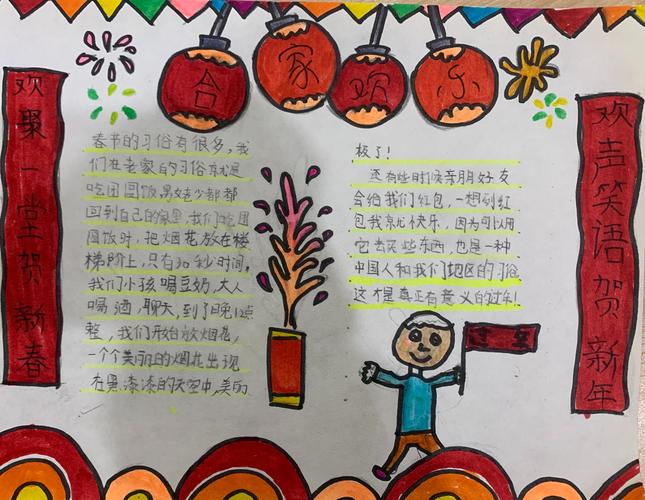 合家欢乐
欢聚一堂贺新春
春节的习俗有很多，我
们在老家的习俗就是
吃团圆饭男女老少都都
回到自己的家里，我们吃团
圆饭时，把烟花放在楼
梯阶上，只有30秒时间，
我们小孩喝豆奶，大人
喝酒，聊天，到了晚12点
整，我们开始放烟花，
一个个美丽的烟花出现
在黑漆漆的天空中，美的
极了！
还有些时候亲朋好友
会给我们红包，一想到红
包我就快乐，因为可以用
它去买些东西，也是一种
中国人和我们地区的习俗
这才是真正有意义的过年！
欢声笑语贺新年